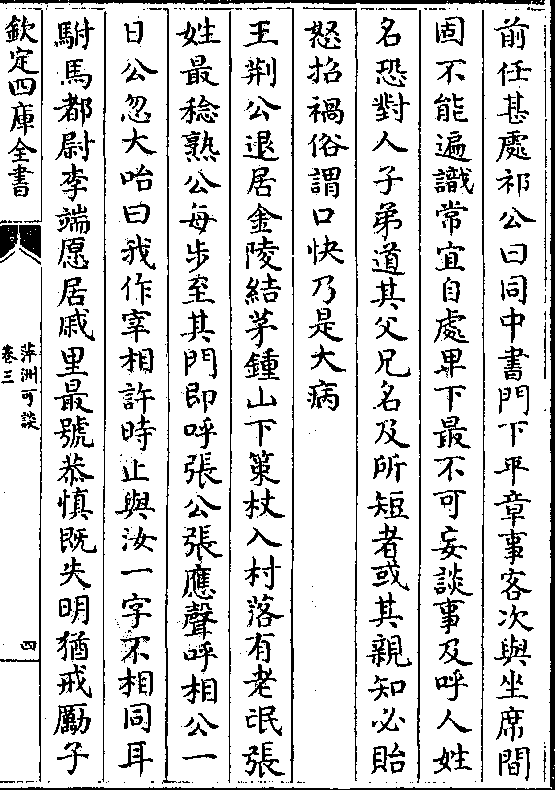 前任甚處祁公曰同中書門下平章事客次與坐席間
固不能遍識常宜自處卑下最不可妄談事及呼人姓
名恐對人子弟道其父兄名及所短者或其親知必貽
怒招禍俗謂口快乃是大病
王荆公退居金陵結茅鍾山下策杖入村落有老氓張
姓最稔熟公每步至其門即呼張公張應聲呼相公一
日公忽大咍曰我作宰相許時止與汝一字不相同耳
駙馬都尉李端愿居戚里最號恭慎既失明猶戒勵子
欽定四庫全書
萍洲可談
卷三
四